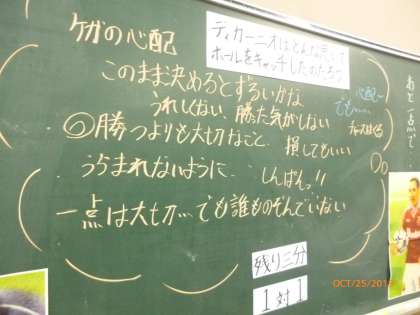 ケガの心配
ディカーニオはどんな思いで
ボールをキャッチしたのだろう
このまま決めるとずるいかな
うれしくない、勝た気がしない
心配〜
でも……
◎勝つよりも大切なこと、損してもいい
うらまれないように、しんぱん!!
一点は大切…でも誰ものぞんでいない
あと一点で
残り三分
1対1
OCT/25/201